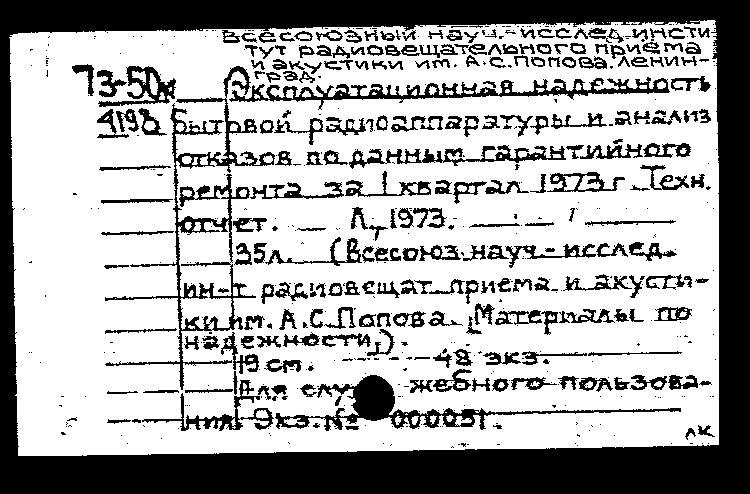 Всесоюзный науч.-исслед.инсти
тут радиовещательного приёма
и акустики им. А.С.Попова.Ленин-
град.
73-50к Эксплуатационная надежность
4193 бытовой радиоаппаратуры и анализ
отказов по данным гарантийного
ремонта за I квартал 1973 г. Техн.
отчет. — Л., 1973. —
35л. (Всесоюз.науч.-исслед.
ин-т радиовещат. приема и акусти-
ки им. А.С.Попова. [Материалы по
надежности]).
19 см. 48 экз.
Для служебного пользова-
ния. Экз.№ 000051.
ЛК